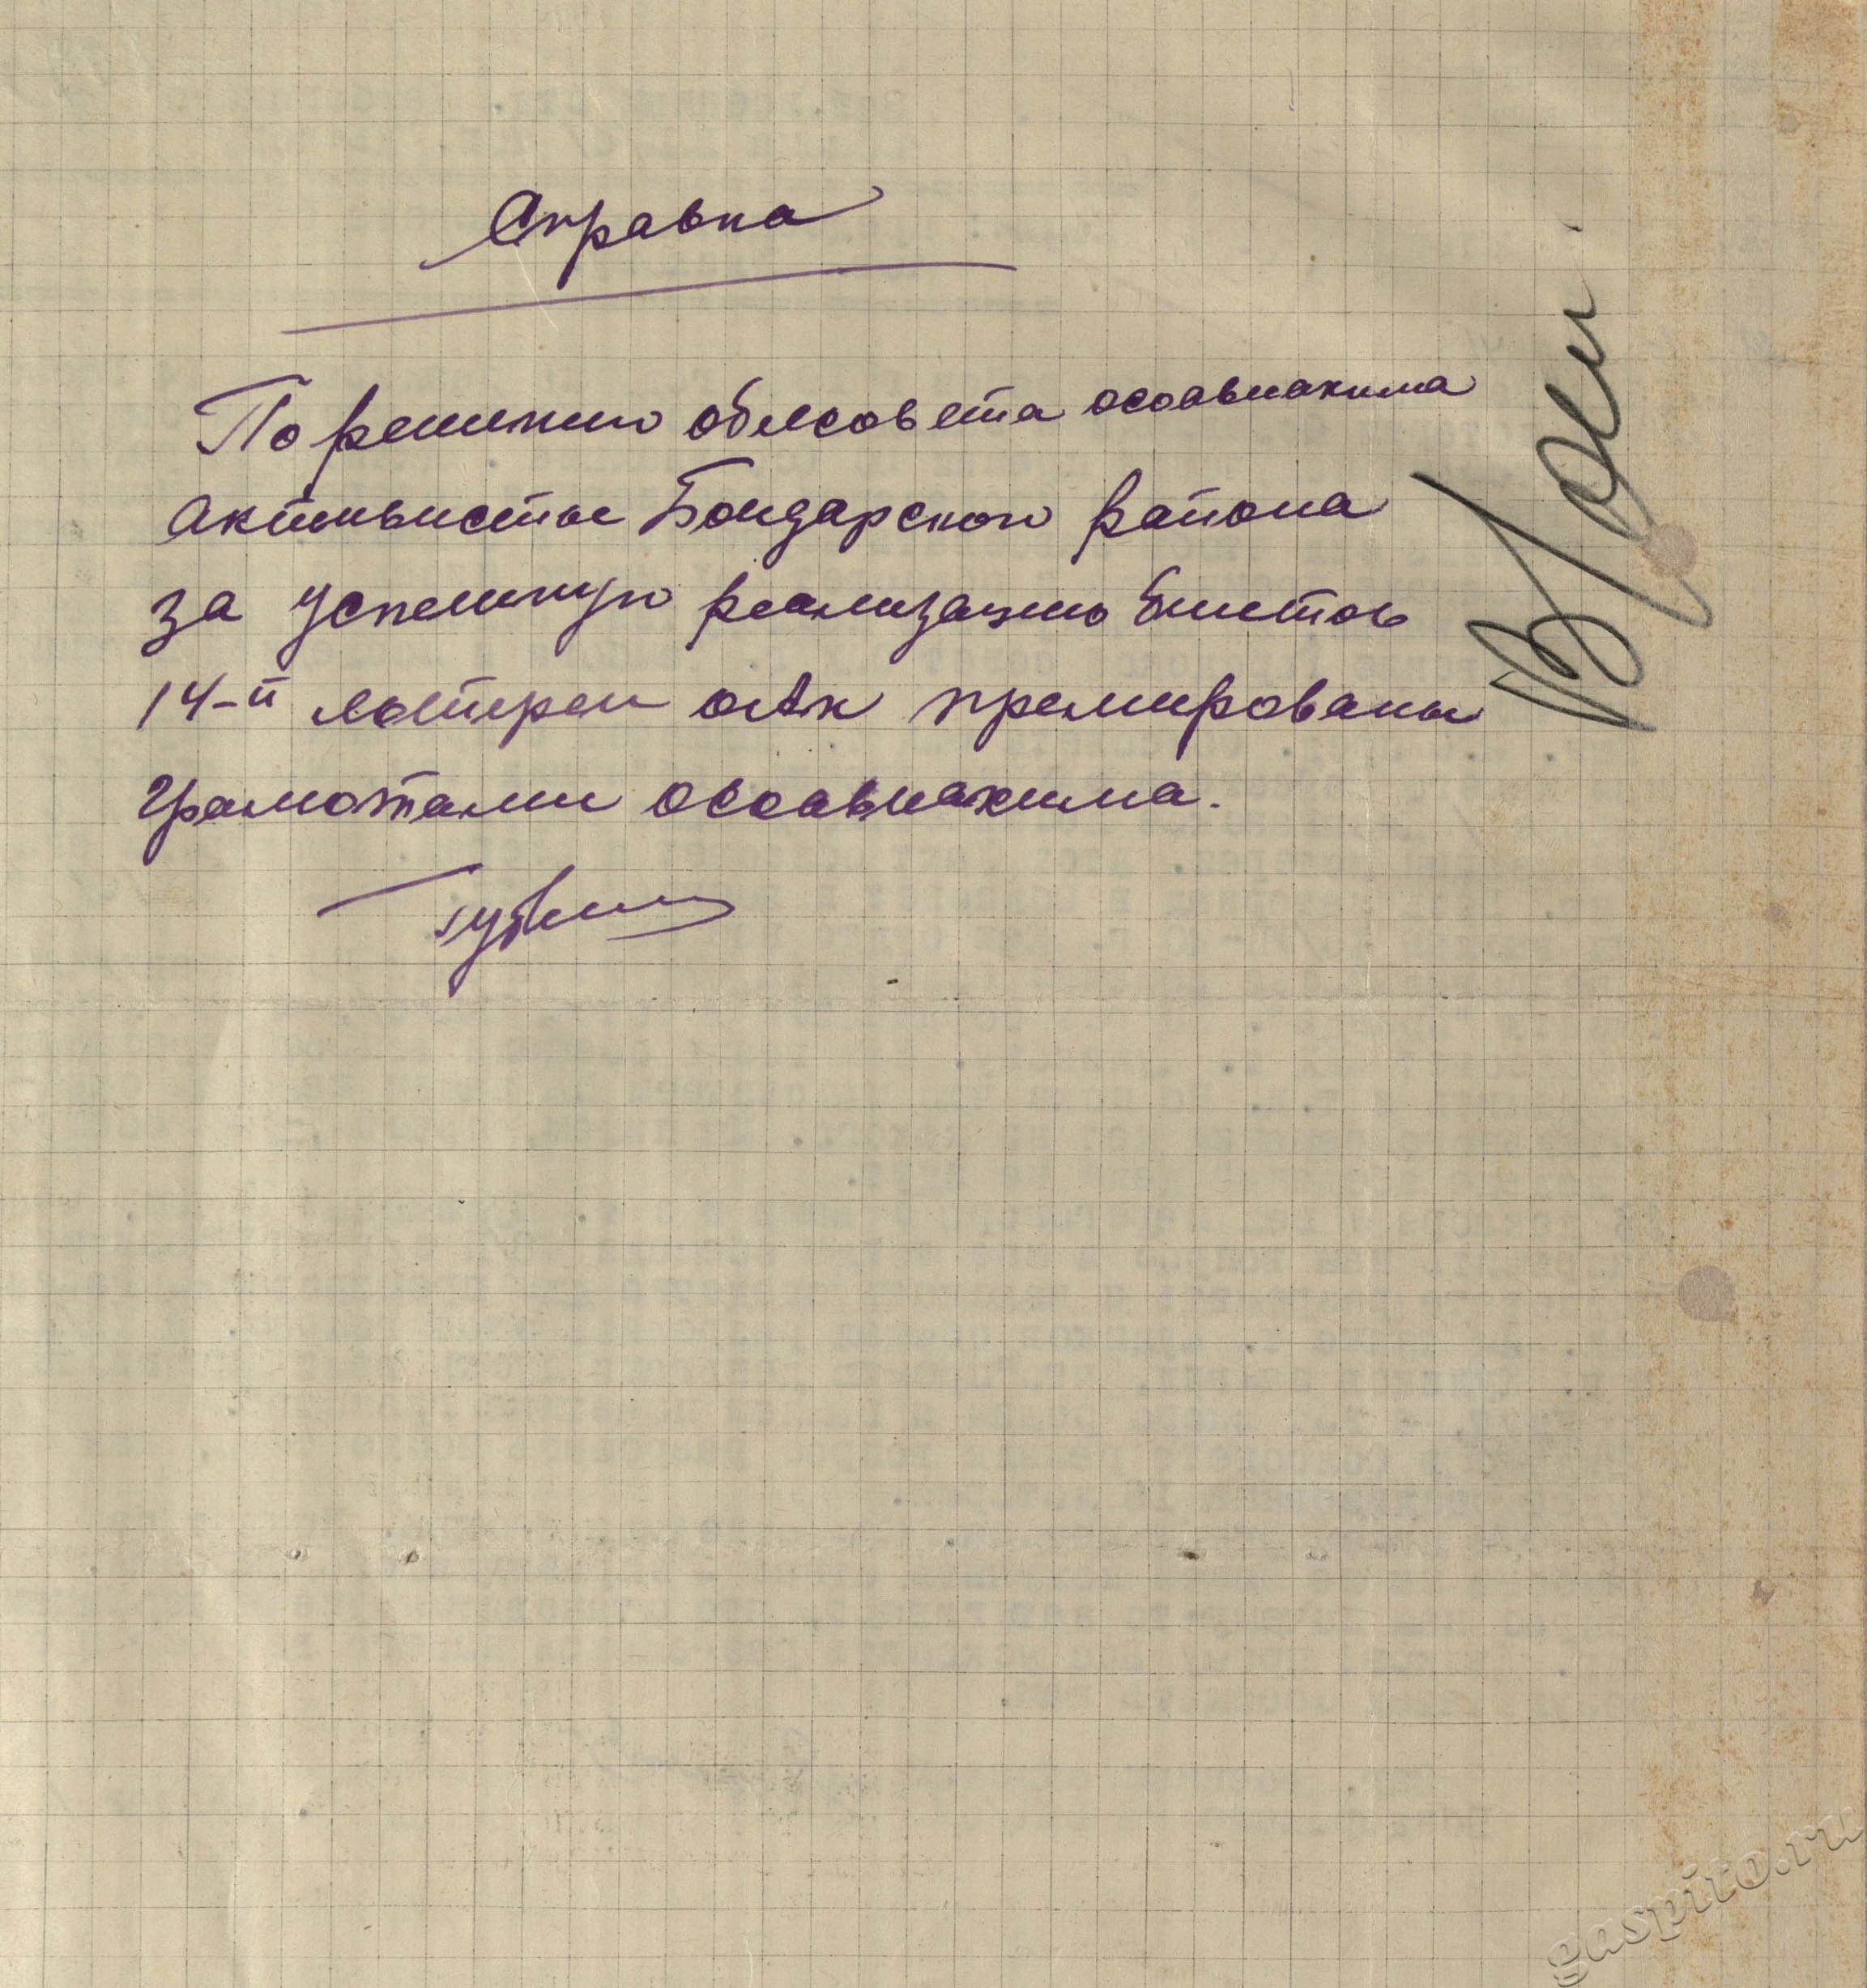 Справка
По решению облсовета осоавиахима
активисты Бондарского района
за успешную реализацию билетов
14-й лотереи оАх премированы
грамотами осоавиахима.
В дели
gaspito.ru